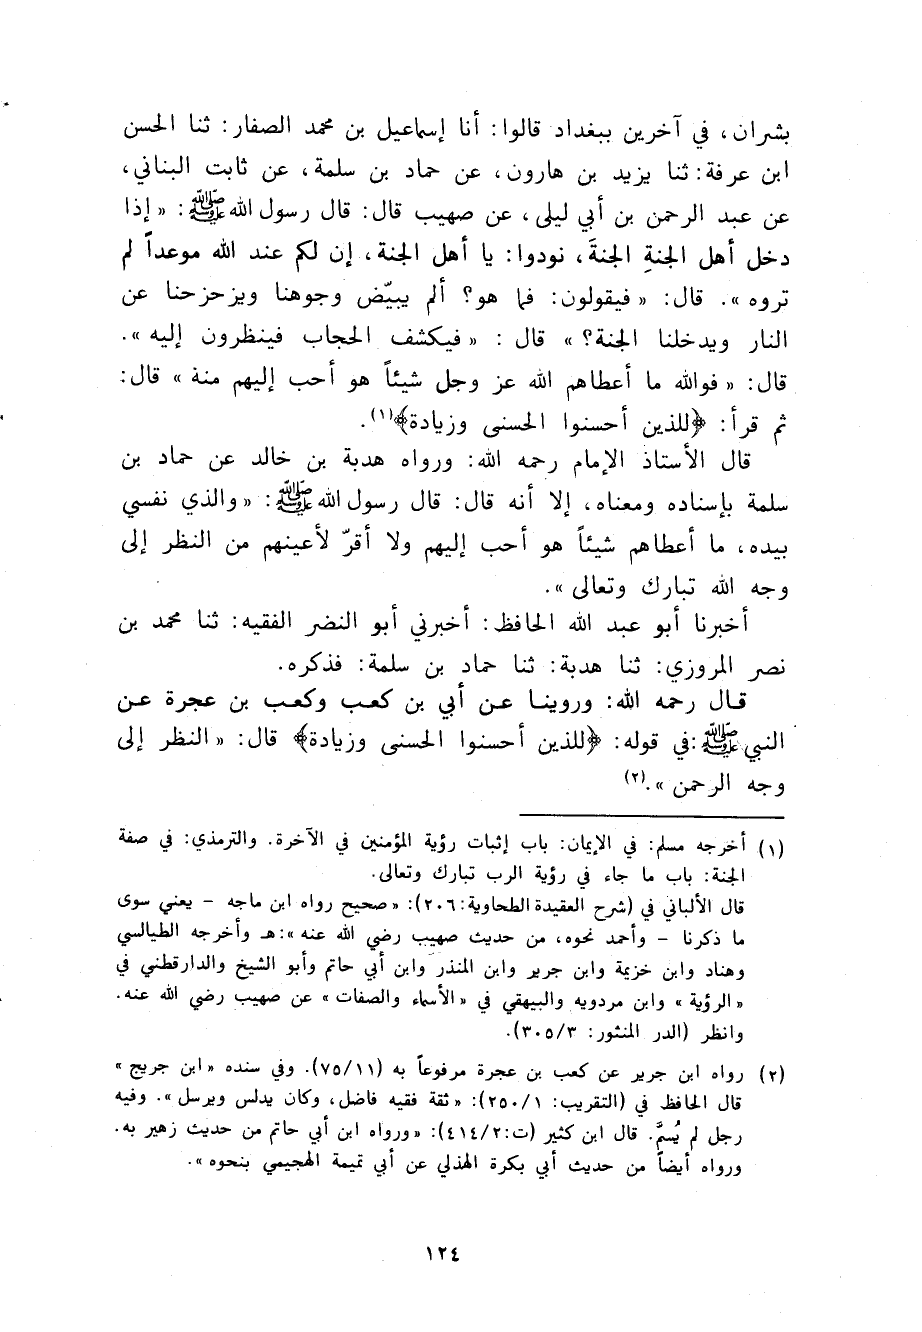 بشران، في آخرين ببغداد قالوا: أنا إسماعيل بن محمد الصفار: ثنا الحسن
ابن عرفة: ثنا يزيد بن هارون، عن حماد بن سلمة، عن ثابت البناني،
عن عبد الرحمن بن أبي ليلى، عن صهيب قال: قال رسول الله ﷺ: « إذا
دخل أهل الجنةِ الجنةَ، نودوا: يا أهل الجنة، إن لكم عند الله موعداً لم
تروه ». قال: « فيقولون: فما هو؟ ألم يبيّض وجوهنا ويزحزحنا عن
النار ويدخلنا الجنة؟ » قال : « فيكشف الحجاب فينظرون إليه ».
قال: « فوالله ما أعطاهم الله عز وجل شيئاً هو أحب إليهم منة » قال:
ثم قرأ: ﴿للذين أحسنوا الحسنى وزيادة﴾(١).
قال الأستاذ الإمام رحمه الله: ورواه هدبة بن خالد عن حماد بن
سلمة بإسناده ومعناه، إلا أنه قال: قال رسول الله ﷺ: « والذي نفسي
بيده، ما أعطاهم شيئاً هو أحب إليهم ولا أقرّ لأعينهم من النظر إلى
وجه الله تبارك وتعالى ».
أخبرنا أبو عبد الله الحافظ: أخبرني أبو النضر الفقيه: ثنا محمد بن
نصر المروزي: ثنا هدبة: ثنا حماد بن سلمة: فذكره.
قال رحمه الله: وروينا عن أبي بن كعب وكعب بن عجرة عن
النبي ﷺ: في قوله: ﴿للذين أحسنوا الحسنى وزيادة﴾ قال: « النظر إلى
وجه الرحمن ».(٢)
(١) أخرجه مسلم: في الإيمان: باب إثبات رؤية المؤمنين في الآخرة. والترمذي: في صفة
الجنة: باب ما جاء في رؤية الرب تبارك وتعالى.
قال الألباني في (شرح العقيدة الطحاوية: ٢٠٦): « صحيح رواه ابن ماجه – يعني سوى
ما ذكرنا – وأحمد نحوه، من حديث صهيب رضي الله عنه »: هـ وأخرجه الطيالسي
وهناد وابن خزيمة وابن جرير وابن المنذر وابن أبي حاتم وأبو الشيخ والدارقطني في
« الرؤية » وابن مردويه والبيهقي في « الأسماء والصفات » عن صهيب رضي الله عنه.
وانظر (الدر المنثور: ٣٠٥/٣).
(٢) رواه ابن جرير عن كعب بن عجرة مرفوعاً به (٧٥/١١). وفي سنده « ابن جريج »
قال الحافظ في (التقريب: ٢٥٠/١): « ثقة فقيه فاضل، وكان يدلس ويرسل ». وفيه
رجل لم يُسمَّ. قال ابن كثير (ت: ٤١٤/٢): « ورواه ابن أبي حاتم من حديث زهير به.
ورواه أيضاً من حديث أبي بكرة الهذلي عن أبي تميمة الهجيمي بنحوه ».
١٢٤